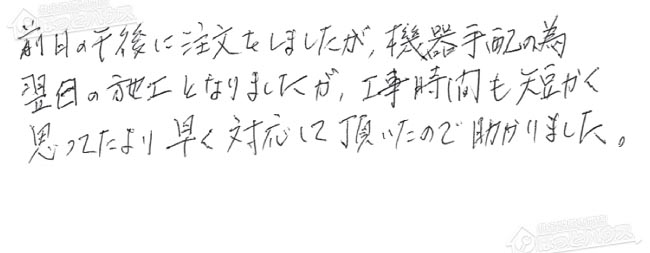 前日の午後に注文をしましたが、機器手配の為
翌日の施工となりましたが、工事時間も短かく
思ってたより早く対応して頂いたので助かりました。